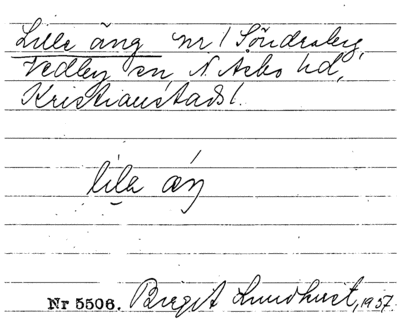 Lille äng nr 1 Söndraberg,
Vedby sn, N. Åsbo hd,
Kristianstads l.
lila äŋ
Nr 5506. Birgit Lundhust, 1957